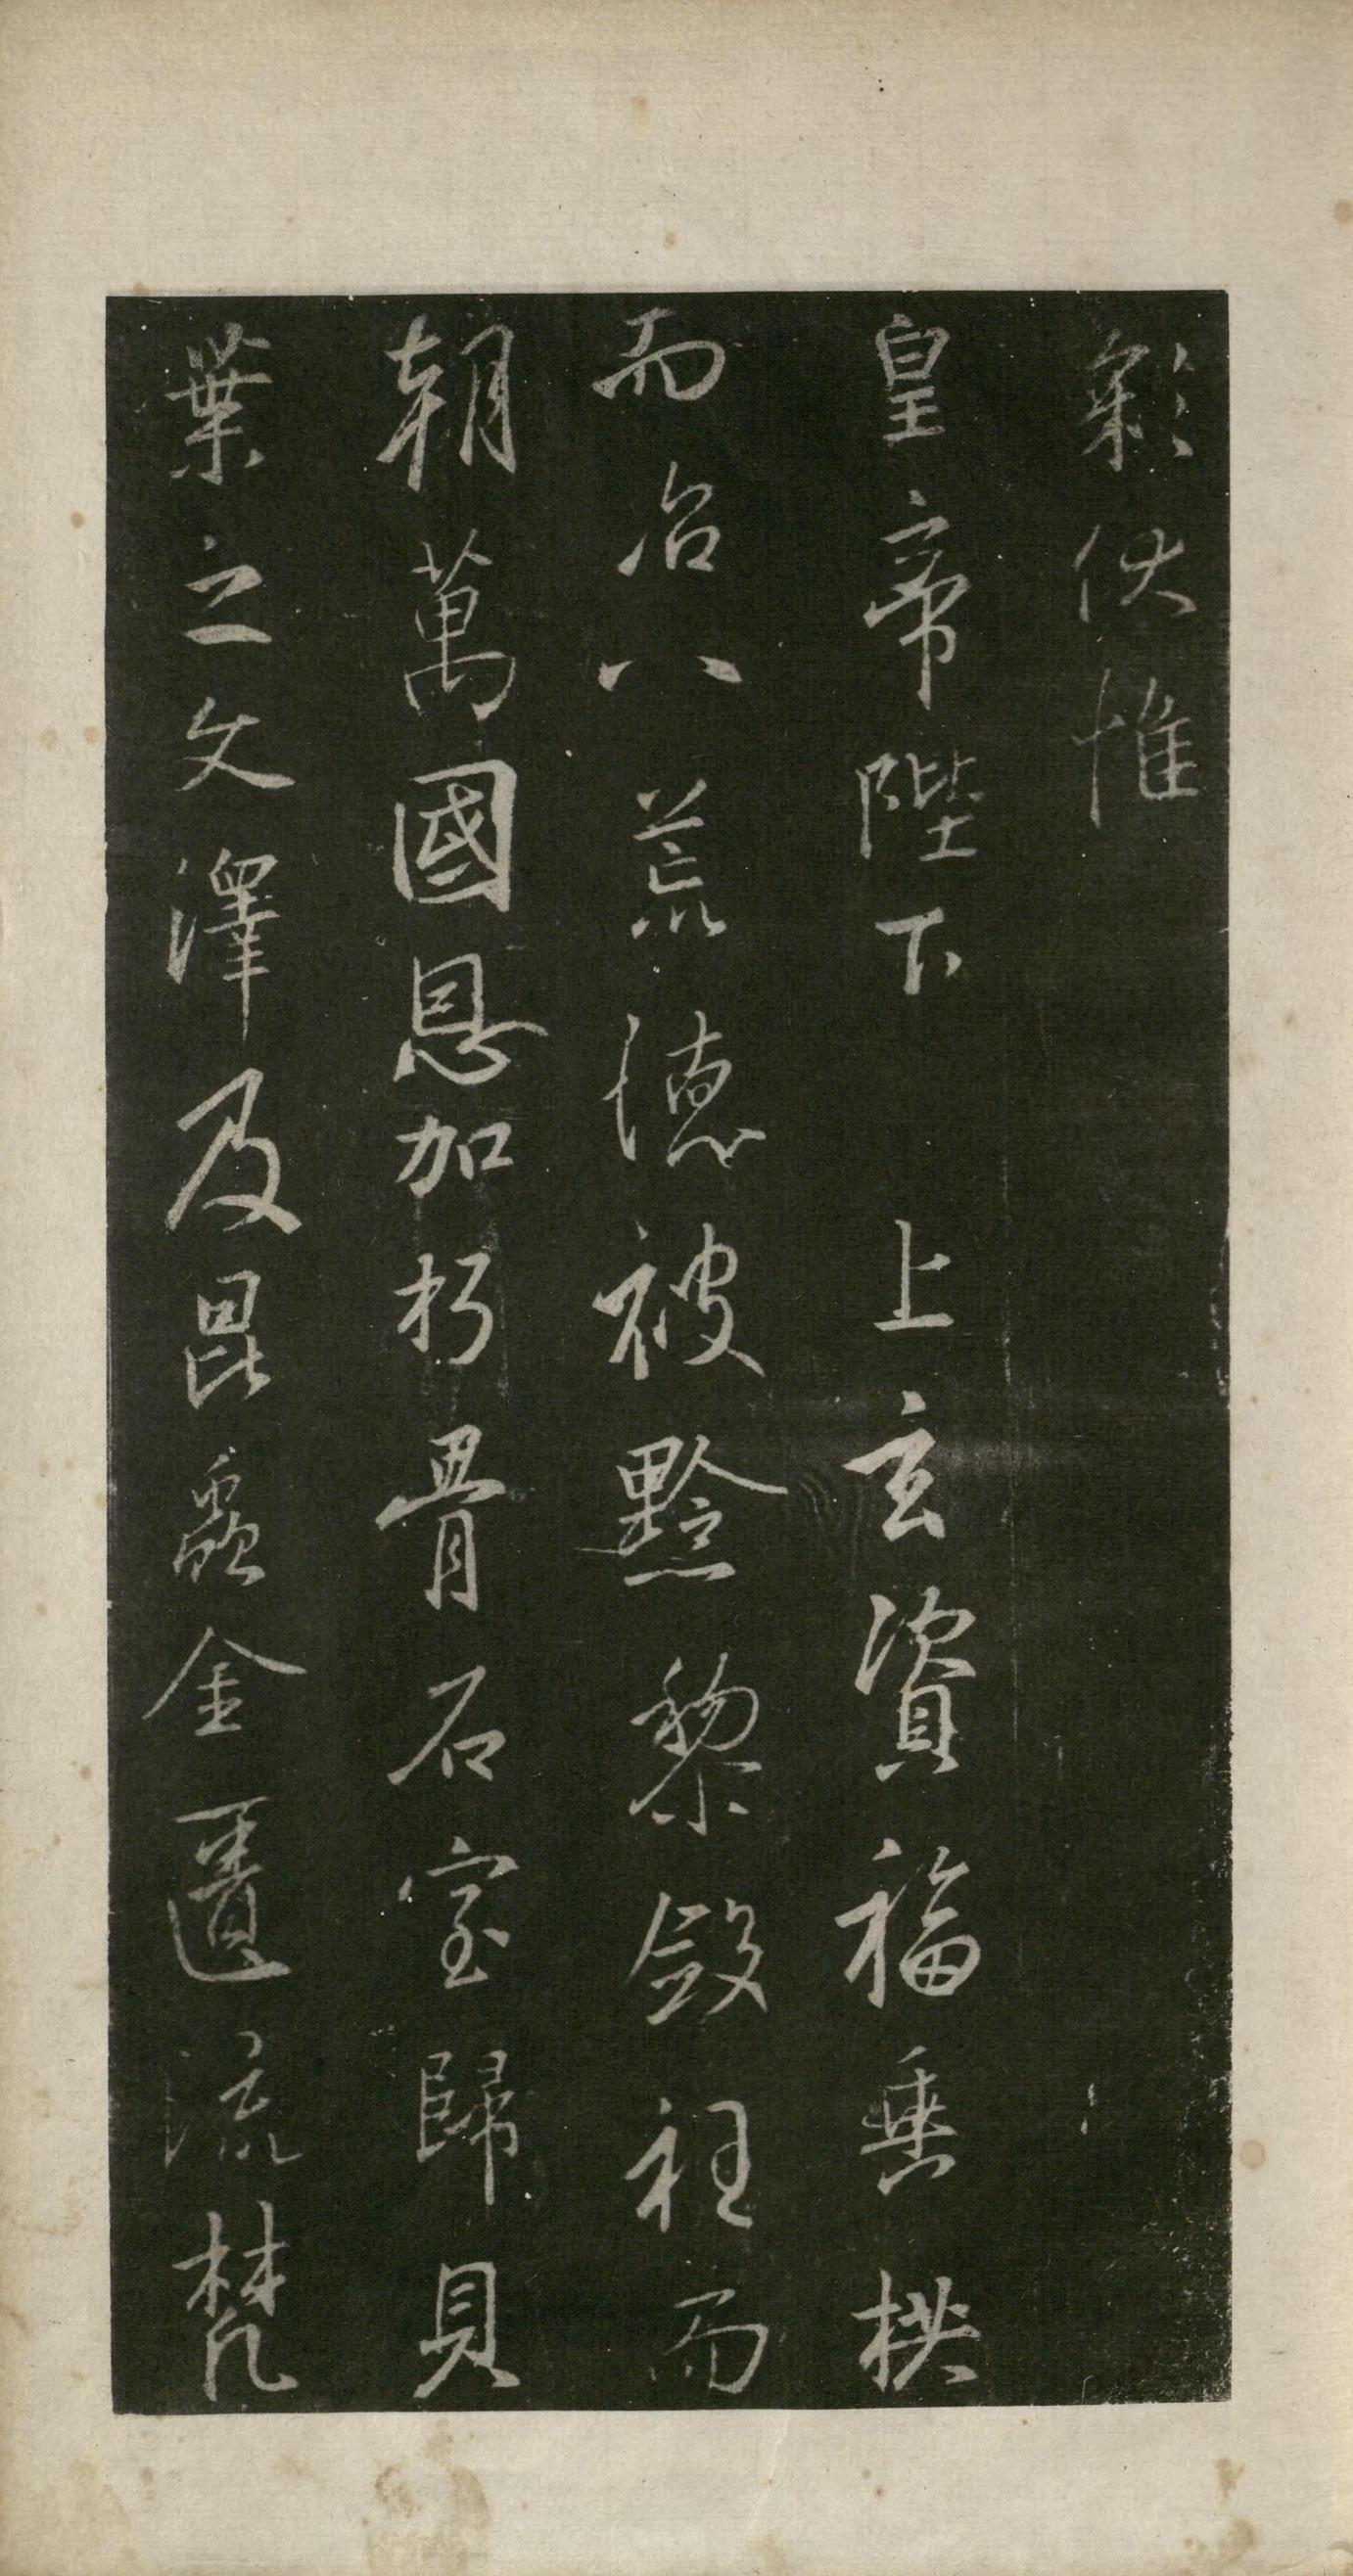 彩伏惟
皇帝陛下上玄資福垂拱
而治八荒德被黔黎斂衽而
朝萬國恩加朽骨石室歸貝
葉之文澤及昆蟲金匱流梵